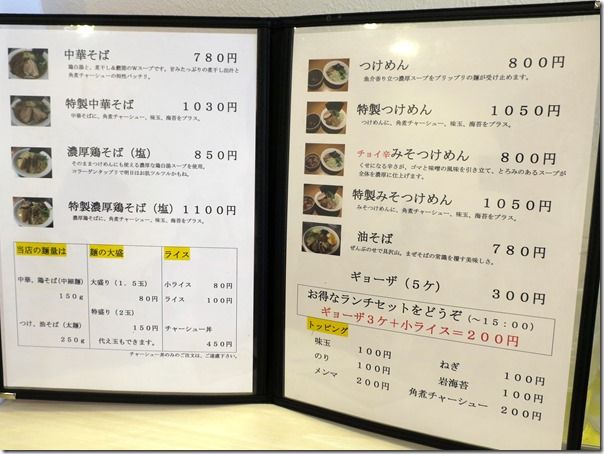 中華そば 780円
鶏白湯と、煮干し&鰹節のWスープです。甘みたっぷりの煮干し出汁と
角煮チャーシューの相性バッチリ。
特製中華そば 1030円
中華そばに、角煮チャーシュー、味玉、海苔をプラス。
濃厚鶏そば(塩) 850円
そのままつけめんにも使える濃厚な鶏白湯スープを使用。
コラーゲンタップリで明日はお肌ツルツルかもね。
特製濃厚鶏そば(塩) 1100円
濃厚鶏そばに、角煮チャーシュー、味玉、海苔をプラス。
当店の麺量は 麺の大盛 ライス
中華、鶏そば(中細麺) 大盛り(1.5玉) 小ライス 80円
150g 80円 ライス 100円
特盛り(2玉)
つけ、油そば(太麺) 150円 チャーシュー丼
250g 代え玉もできます。 450円
チャーシュー丼のみのご注文は、ご遠慮下さい。
つけめん 800円
魚介香り立つ濃厚スープをプリップリの麺が受け止めます。
特製つけめん 1050円
つけめんに、角煮チャーシュー、味玉、海苔をプラス。
チョイ辛みそつけめん 800円
くせになる辛さが、ゴマと味噌の風味を引き立て、とろみのあるスープが
全体を濃厚に仕上げます。
特製みそつけめん 1050円
みそつけめんに、角煮チャーシュー、味玉、海苔をプラス。
油そば 780円
ぜんぶのせで具沢山。まぜそばの常識を覆す美味しさ。
ギョーザ(5ケ) 300円
お得なランチセットをどうぞ(〜15:00)
ギョーザ3ケ+小ライス=200円
トッピング
味玉 100円 ねぎ 100円
のり 100円 岩海苔 100円
メンマ 200円 角煮チャーシュー 200円